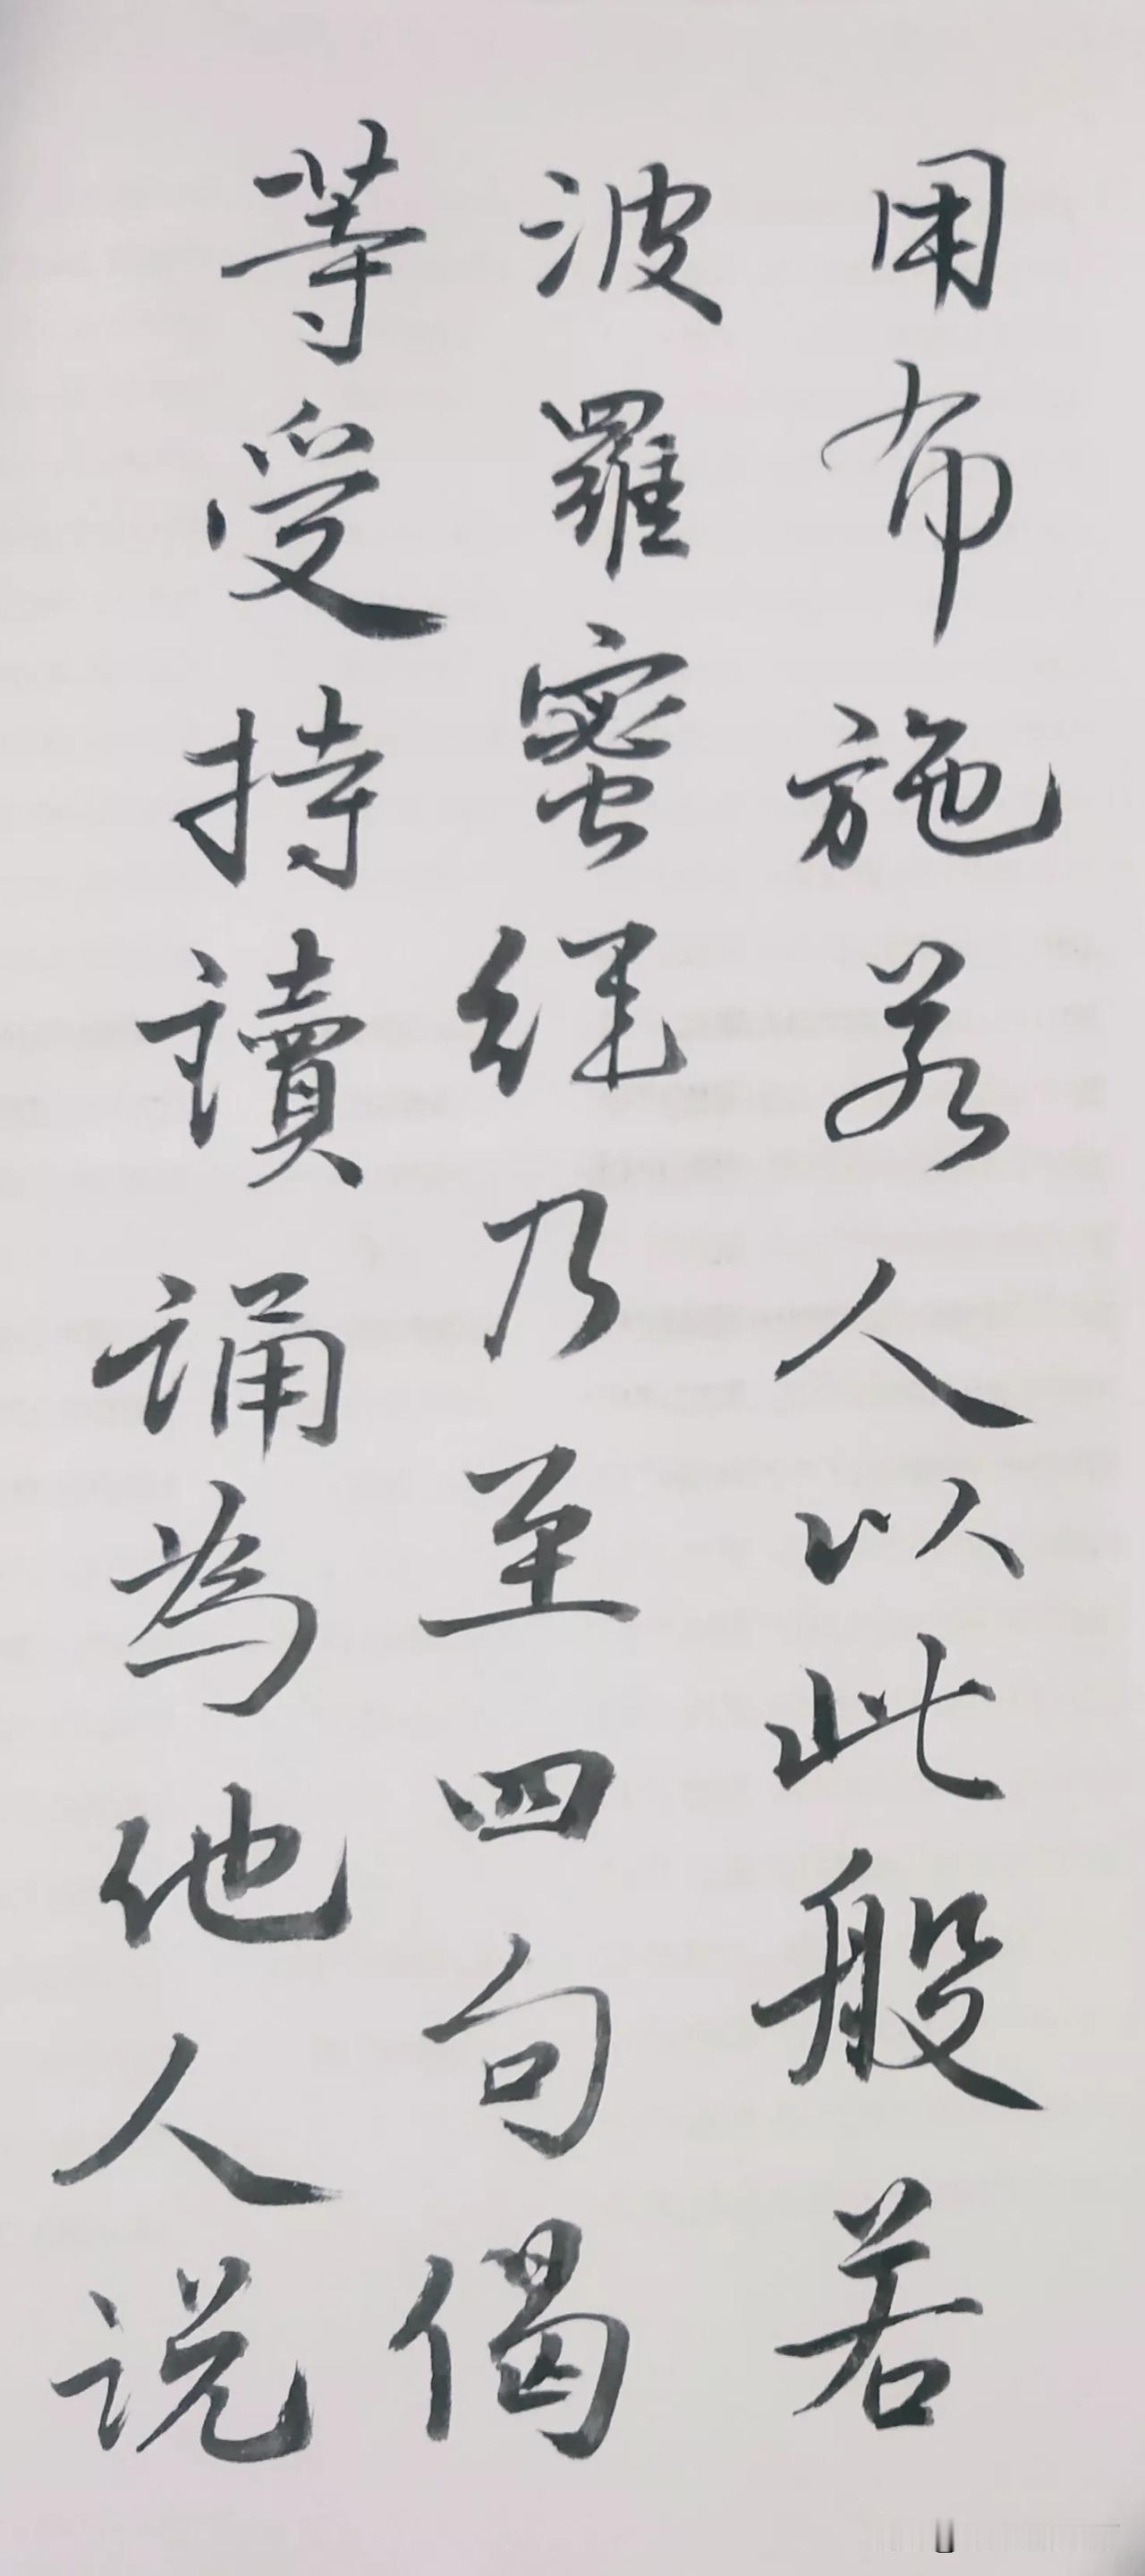 用布施若人以此般若
波羅蜜經乃至四句偈
等受持讀誦為他人説